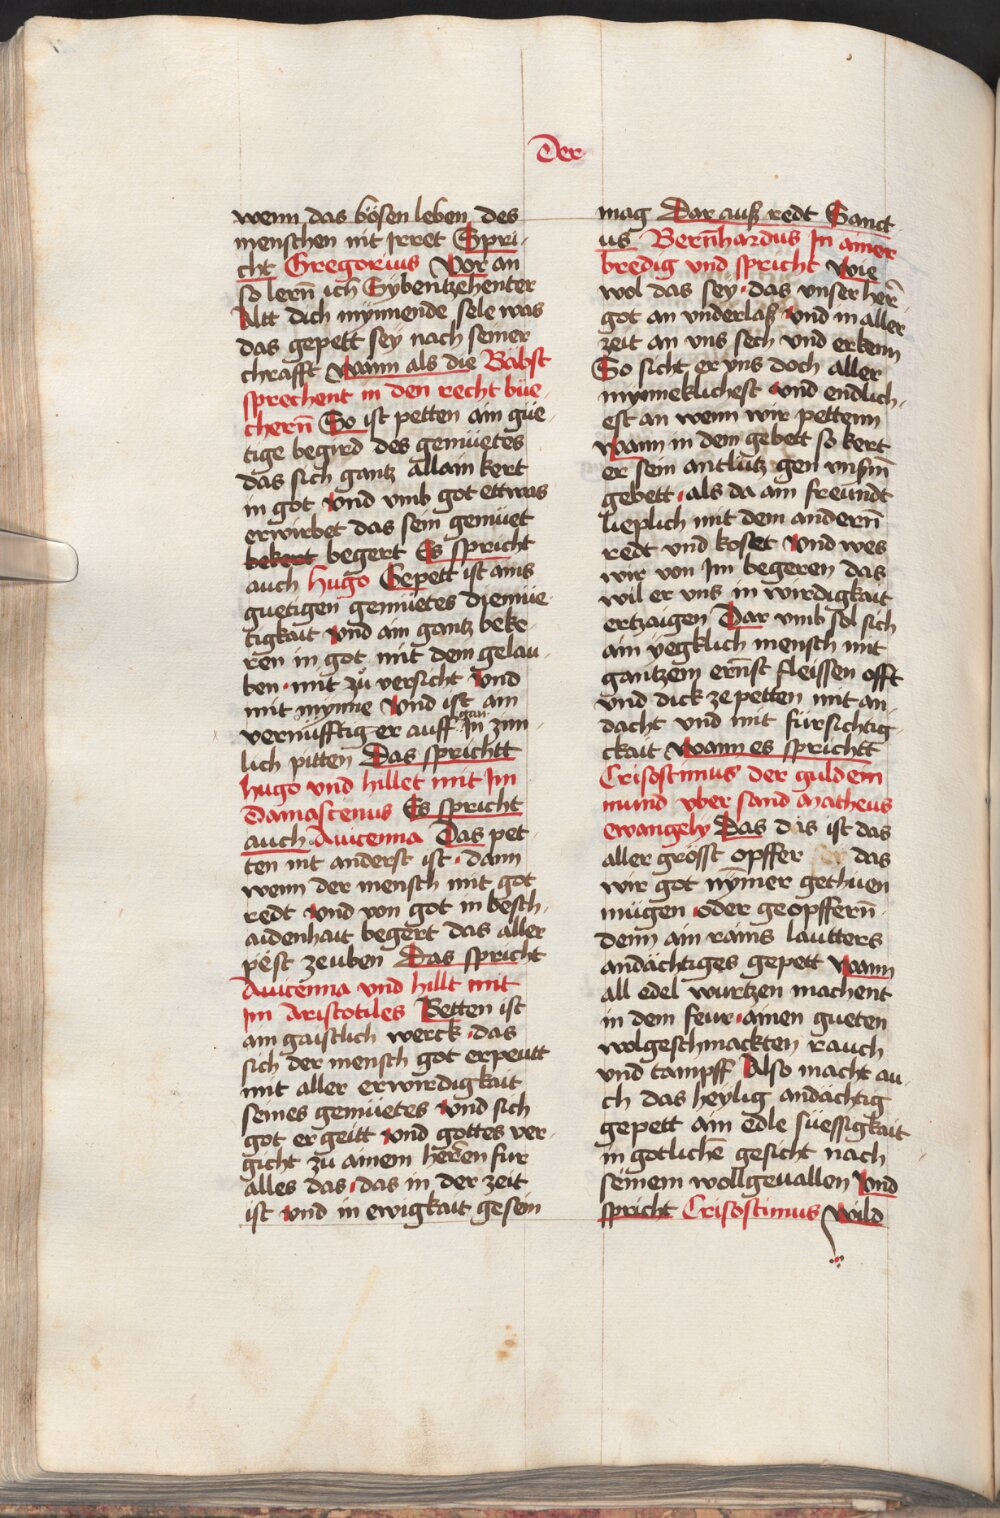 Der
wenn das bösen leben des
menschen nit Jrret Spri-
cht Gregorius Vor an
so lerñ ich Sybentzehenter
Altt dich mynnende sele was
das gepett sey nach seiner
chrafft wann als die Bäbst
sprechent in den recht büe-
cherñ So ist petten ain güe-
tige begird des gemüetes
das sich gantz allain kert
in got Vnd vmb got ettwas
erwirbet das sein gemüet
bekert begert Es spricht
auch Hugo Gepett ist ains
guetigen gemüetes diemüe-
tigkait vnd ain gantz beke-
ren in got mit dem gelau-
ben mit zů versicht Vnd
mit mynne Vnd ist ain
vernüfftig er auff gan Jn zim-
lich pitten Das sprichtt
Hugo vnd hillet mit Jm
Damascenus Es spricht
auch Auicenna Das pet-
ten nit anderst ist dann
wenn der mensch mit got
redt Vnd von got in besch-
aidenhait begert das aller
pest zeuben Das spricht
Auicenna vnd hillt mit
Jm Aristotiles Betten ist
ain gaistlich werck das
sich der mensch got erpeutt
mit aller erwirdigkait
seines gemüetes vnd sich
got ergeitt vnd gottes ver-
gicht zů ainem herren für
alles das das in der zeit
ist vnd in ewigkait gesein
mag Dar auß redt Sanct-
us Berñhardus Jn ainer
bredig vnd spricht wie
wol das sey das vnser herr̃
got an vnderlaß Vnd in aller
zeit an vns sech vnd erkenn
So sicht er vns doch aller
mynneklichest vnd endlich-
est an wenn wir pettenn
wann in dem gebett so kert
er sein antlütz gen vnsm̃
gebett als da ain freündt
lieplich mit dem anderñ
redt vnd koset Vnd wes
wir von Jm begeren das
wil er vns in wirdigkait
ertzaigen Dar vmb sol sich
ain yegklich mensch mit
gantzem ernst fleissen offt
vnd dick ze petten mit an-
dacht vnd mit fürsichtig-
ckait wann es sprichtt
Crisostimus der guldein
mund vber sand Matheus
ewangely Das das ist das
aller grösst opffer das
wir got nymer gethüen
mügen oder geopfferñ
denn ain rains lautters
andächtiges gepett wann
all edel wurtzen machent
in dem feur ainen gueten
wolgeschmackten rauch
vnd tampff Also macht au-
ch das heylig andächtig
gepett ain edle süessigkait
in gotlichẽ gesicht nach
seinem wollgeuallen Vnd
spricht Crisostimus Wild